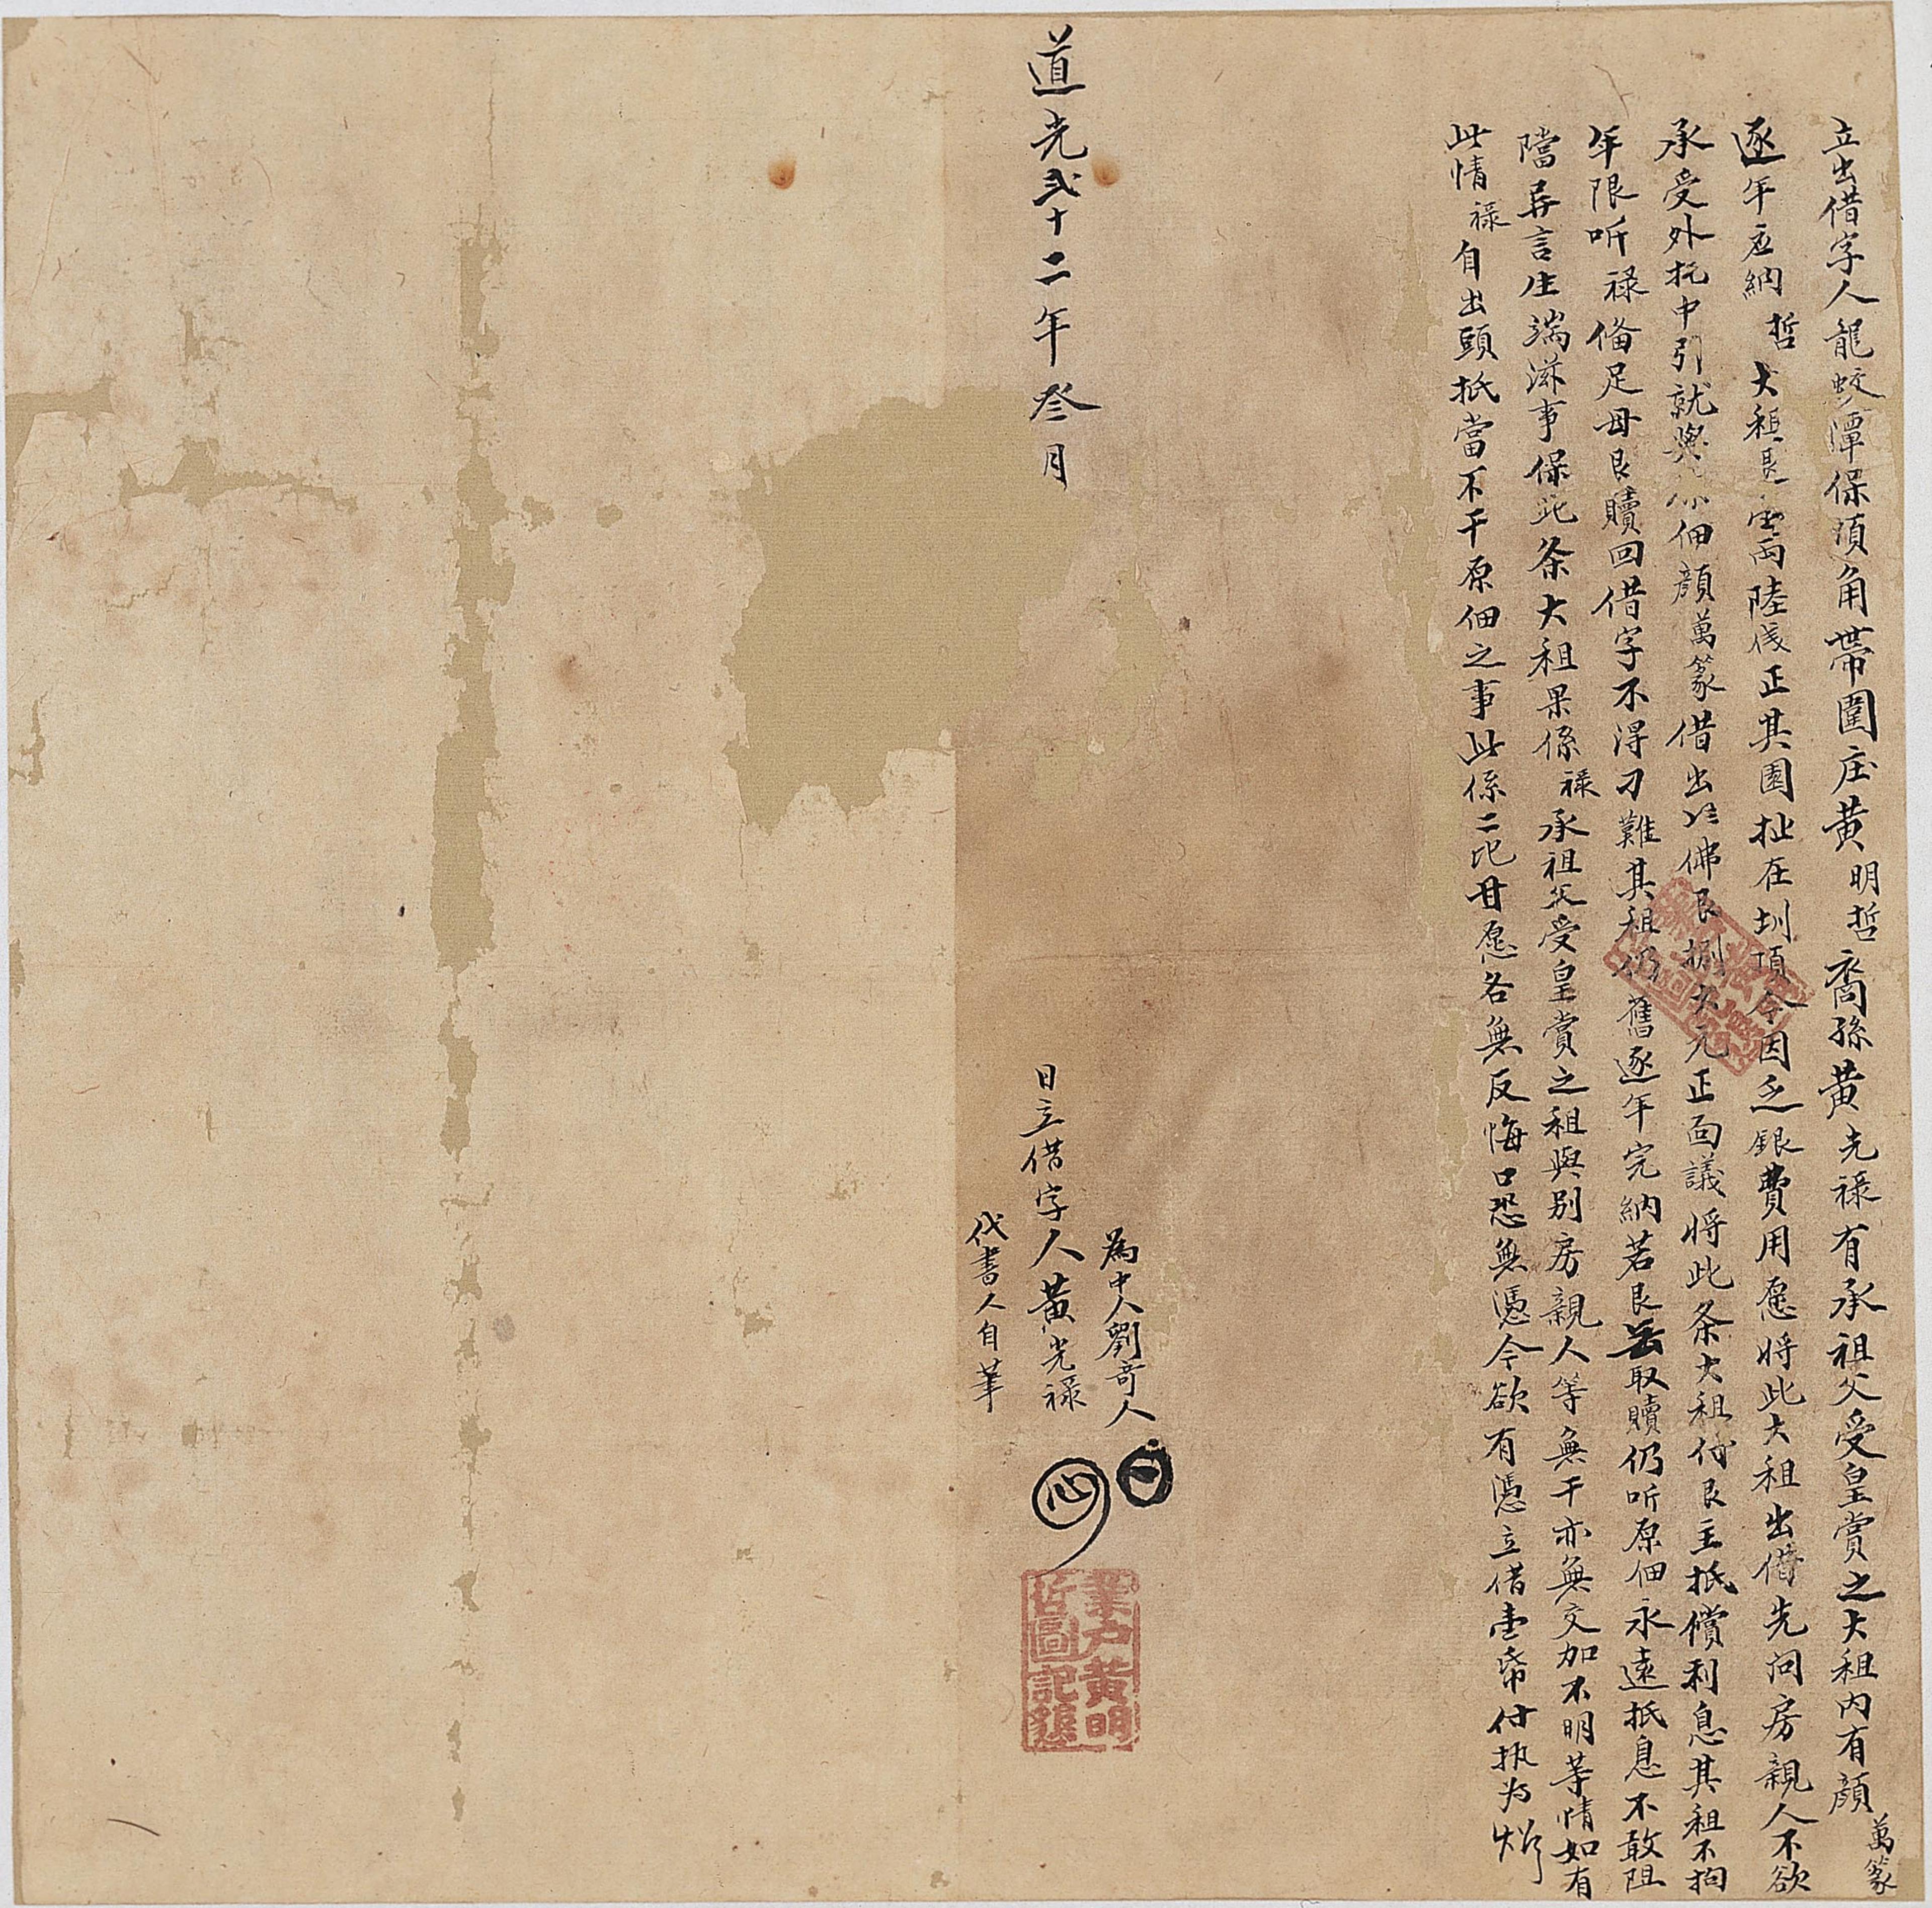 立出借字人龍蛟潭保頂角帶圍庄黃明哲裔孫黃光祿有承祖父受皇賞之大租內有顏萬篆
逐年応納哲大租艮両陸戔正其園址在圳項今因乏銀費用愿將此大租出借先问房親人不欲
承受外托中引就與佃顏萬篆借出佛艮捌大元正面議將此条大租付艮主抵償利息其租不拘
年限听祿俻足母艮贖回借字不得刁難其租仍舊逐年完納若艮無取贖仍听原佃永遠抵息不敢阻
擋异言生端滋事保此条大租果係祿承祖父受皇賞之租與别房親人等無干亦無交加不明等情如有
此情祿自出頭抵當不干原佃之事此係二比甘愿各無反悔口恐無憑今欲有憑立借壹帋付执为炤
為中人劉奇人
道光弍十二年叄月 日立借字人黃光祿 心
代書人自筆
業户黃明
哲圖記